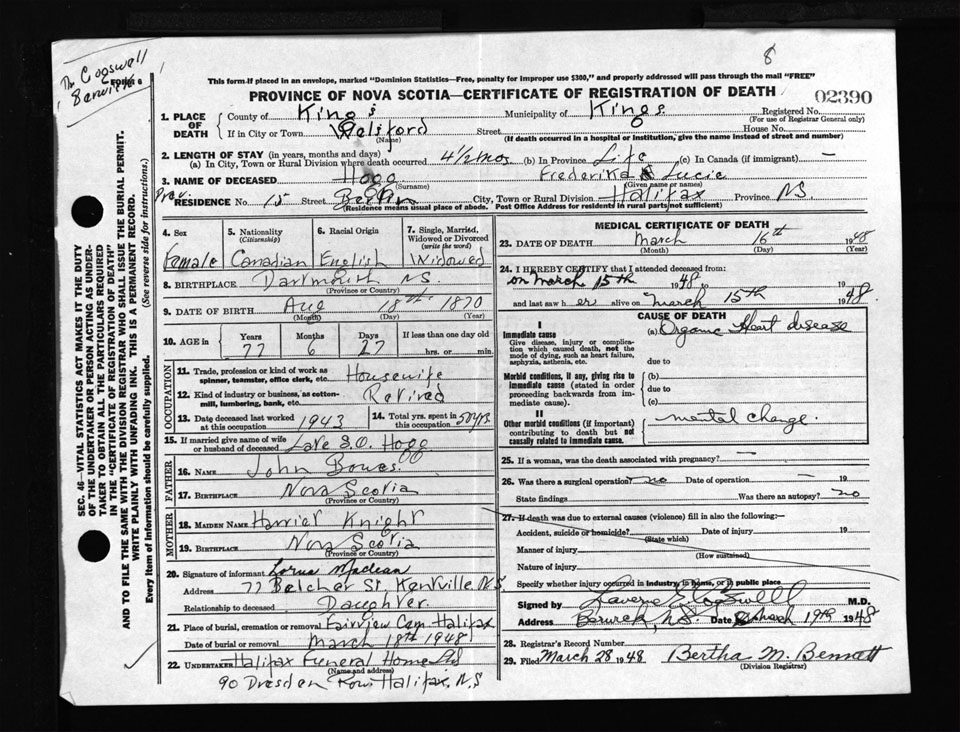 8
Dr. Cogswell
Berwick
FORM 6
This form if placed in an envelope, marked "Dominion Statistics—Free, penalty for improper use $300," and properly addressed will pass through the mail "FREE"
PROVINCE OF NOVA SCOTIA—CERTIFICATE OF REGISTRATION OF DEATH
02390
SEC. 46—VITAL STATISTICS ACT MAKES IT THE DUTY
OF THE UNDERTAKER OR PERSON ACTING AS UNDER-
TAKER TO OBTAIN ALL THE PARTICULARS REQUIRED
IN THE "CERTIFICATE OF REGISTRATION OF DEATH"
AND TO FILE THE SAME WITH THE DIVISION REGISTRAR WHO SHALL ISSUE THE BURIAL PERMIT.
WRITE PLAINLY WITH UNFADING INK. THIS IS A PERMANENT RECORD.
Every item of Information should be carefully supplied. (See reverse side for instructions.)
1. PLACE OF DEATH County of King's Municipality of Kings Registered No.
(For use of Registrar General only)
If in City or Town Welsford Street House No.
(Name) (If death occurred in a hospital or institution, give the name instead of street and number)
2. LENGTH OF STAY (in years, months and days)
(a) In City, Town or Rural Division where death occurred 4 1/2 mos (b) In Province Life (c) In Canada (if immigrant) —
3. NAME OF DECEASED Hogg Frederika Lucie
(Surname) (Given name or names)
Prev. RESIDENCE No. 15 Street Berlin City, Town or Rural Division Halifax Province NS
(Residence means usual place of abode. Post Office Address for residents in rural parts not sufficient)
4. Sex 5. Nationality (Citizenship) 6. Racial Origin 7. Single, Married, Widowed or Divorced (write the word)
Female Canadian English Widowed
8. BIRTHPLACE Dartmouth NS.
(Province or Country)
9. DATE OF BIRTH Aug 18th 1870
(Month) (Day) (Year)
10. AGE in Years Months Days If less than one day old
77 6 27 hrs. or min.
OCCUPATION
11. Trade, profession or kind of work as spinner, teamster, office clerk, etc. Housewife
12. Kind of industry or business, as cotton-mill, lumbering, bank, etc. Retired
13. Date deceased last worked at this occupation 1943 14. Total yrs. spent in this occupation 50 yrs.
15. If married give name of wife or husband of deceased Late S.O. Hogg
FATHER
16. NAME John Bowes.
17. BIRTHPLACE Nova Scotia
(Province or Country)
MOTHER
18. MAIDEN NAME Harriet Knight
19. BIRTHPLACE Nova Scotia
(Province or Country)
20. Signature of informant Lorna Maclean
Address 77 Belcher St. Kentville, N.S.
Relationship to deceased Daughter.
21. Place of burial, cremation or removal Fairview Cem Halifax
Date of burial or removal March 18th 1948
22. UNDERTAKER Halifax Funeral Home Ltd
(Name and address)
90 Dresden Row Halifax. N.S
MEDICAL CERTIFICATE OF DEATH
23. DATE OF DEATH March 16th 1948
(Month) (Day) (Year)
24. I HEREBY CERTIFY that I attended deceased from:
on March 15th 1948 to 19
and last saw her alive on March 15th 1948.
CAUSE OF DEATH
I
Immediate cause (a) Organic Heart disease
Give disease, injury or complica-
tion which caused death, not the
mode of dying, such as heart failure,
asphyxia, asthenia, etc. due to
Morbid conditions, if any, giving rise to (b)
immediate cause (stated in order
proceeding backwards from im-
mediate cause). due to
(c)
II
Other morbid conditions (if important)
contributing to death but not
causally related to immediate cause. mental change.
25. If a woman, was the death associated with pregnancy? —
26. Was there a surgical operation? no Date of operation — 19
State findings Was there an autopsy? no
27. If death was due to external causes (violence) fill in also the following:—
Accident, suicide or homicide? Date of injury 19
(State which)
Manner of injury
(How sustained)
Nature of injury
Specify whether injury occurred in industry, in home, or in public place
Signed by Cogswell M.D.
Address Berwick, N.S. Date March 19th 1948
28. Registrar's Record Number
29. Filed March 28 1948 Bertha M. Bennett
(Division Registrar)